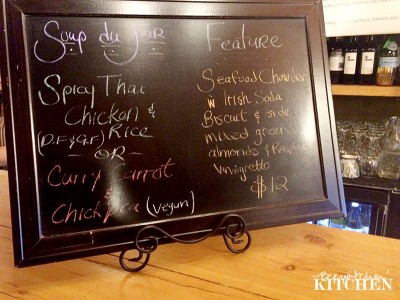 Soup du Jour
Spicy Thai
Chicken &
(D.F & G.F) Rice
OR
Curry Carrot
&
Chick Pea (vegan)
Feature
Seafood Chowder
w Irish Soda
Biscuit & side
mixed green
almonds &
Vinigrette
$12
Bewitchin'
KITCHEN